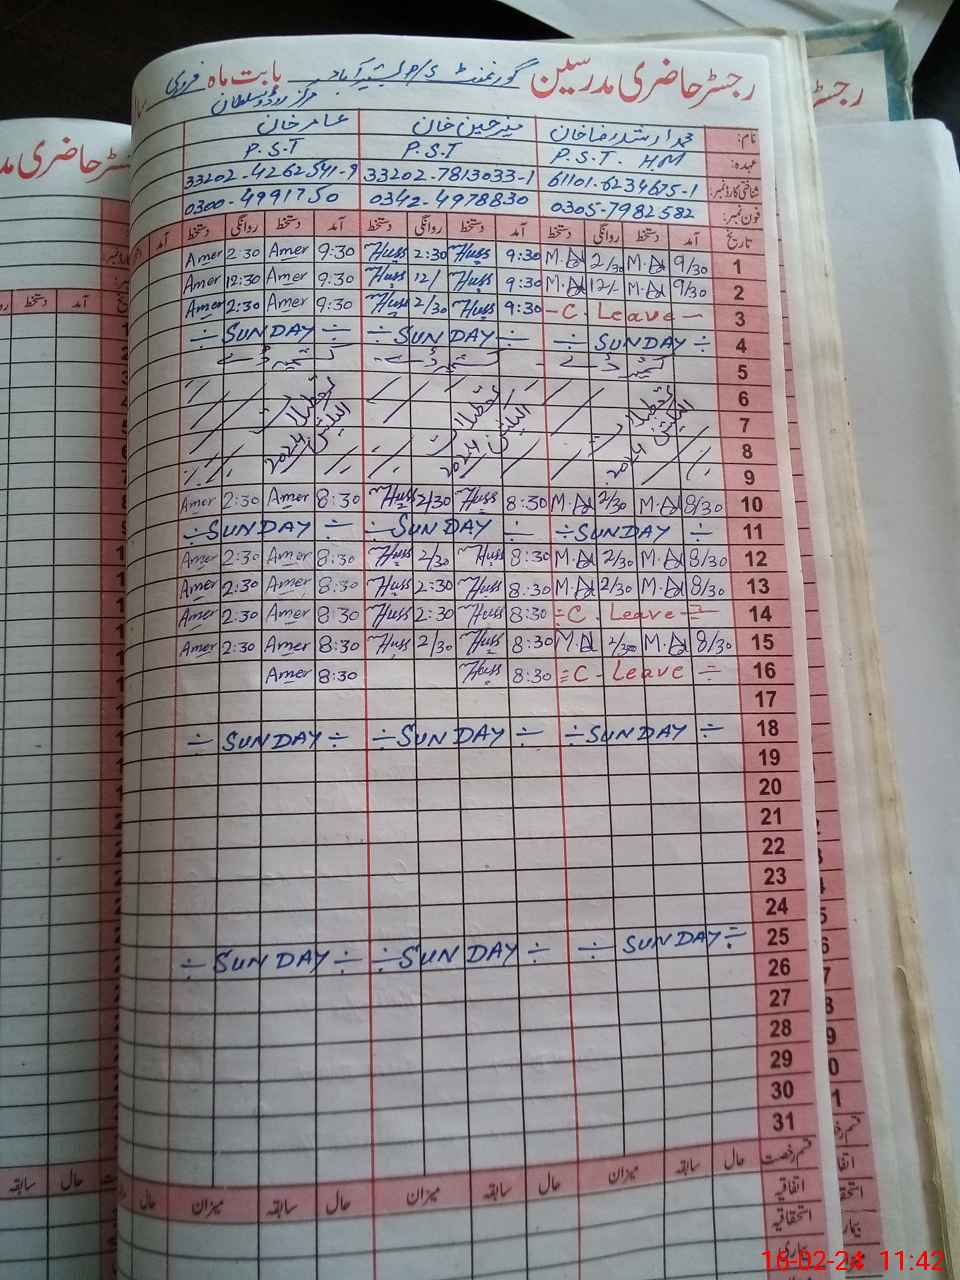 رجسٹر حاضری مدرسین گورنمنٹ P/S بشیرآباد بابت ماہ فروری
مرکز روڈو سلطان
نام: محمد ارشد رضا خان خان عامر خان
عہدہ: P.S.T. HM P.S.T P.S.T
شناختی کارڈ نمبر: 61101-6234675-1 33202-7813033-1 33202-4262541-9
فون نمبر: 0305-7982582 0342-4978830 0300-4991750
تاریخ آمد دستخط روانگی دستخط آمد دستخط روانگی دستخط آمد دستخط روانگی دستخط آمد
1 9/30 M.A 2/30 M.A 9:30 Huss 2:30 Huss 9:30 Amer 2:30 Amer
2 9/30 M.A 12/- M.A 9:30 Huss 12/ Huss 9:30 Amer 12:30 Amer
3 - C. Leave - 9:30 Huss 2/30 Huss 9:30 Amer 2:30 Amer
4 ÷ SUNDAY ÷ ÷ SUNDAY ÷ ÷ SUNDAY ÷
5 کشمیر ڈے کشمیر ڈے کشمیر ڈے
6
7 تعطیلات تعطیلات تعطیلات
8 الیکشن 2024 الیکشن 2024 الیکشن 2024
9
10 8/30 M.A 2/30 M.A 8:30 Huss 2/30 Huss 8:30 Amer 2:30 Amer
11 ÷ SUNDAY ÷ ÷ SUNDAY ÷ ÷ SUNDAY ÷
12 8/30 M.A 2/30 M.A 8:30 Huss 2/30 Huss 8:30 Amer 2:30 Amer
13 8/30 M.A 2/30 M.A 8:30 Huss 2:30 Huss 8:30 Amer 2:30 Amer
14 ÷ C. Leave ÷ 8:30 Huss 2:30 Huss 8:30 Amer 2:30 Amer
15 8/30 M.A 2/30 M.A 8:30 Huss 2/30 Huss 8:30 Amer 2:30 Amer
16 ÷ C - Leave ÷ 8:30 Huss 8:30 Amer
17
18 ÷ SUNDAY ÷ ÷ SUNDAY ÷ ÷ SUNDAY ÷
19
20
21
22
23
24
25 ÷ SUNDAY ÷ ÷ SUNDAY ÷ ÷ SUNDAY ÷
26
27
28
29
30
31
قسم رخصت حال سابقہ میزان حال سابقہ میزان حال سابقہ میزان حال
اتفاقیہ
استحقاقیہ
بیماری
16-02-24 11:42